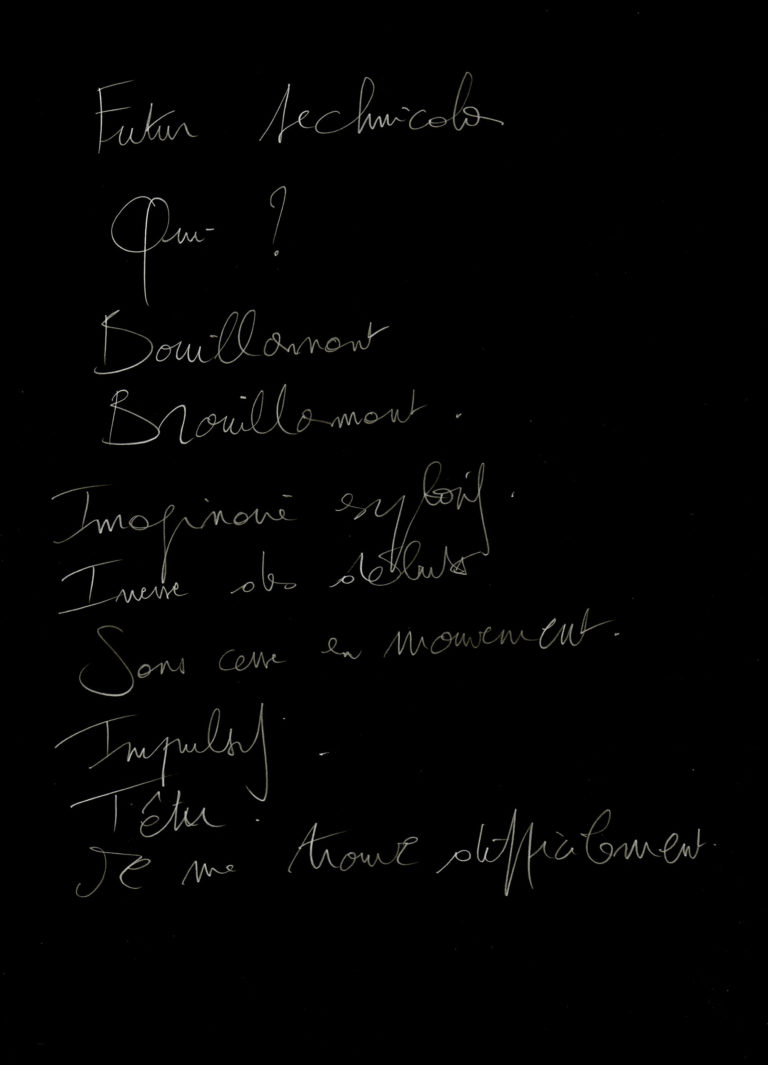 Futur technicolor
Qui ?
Bouillonnant
Brouillonnant.
Imaginarié explosif.
Ivresse des débuts
Sans cesse en mouvement.
Impulsif.
Têtu.
Je me trouve difficilement.